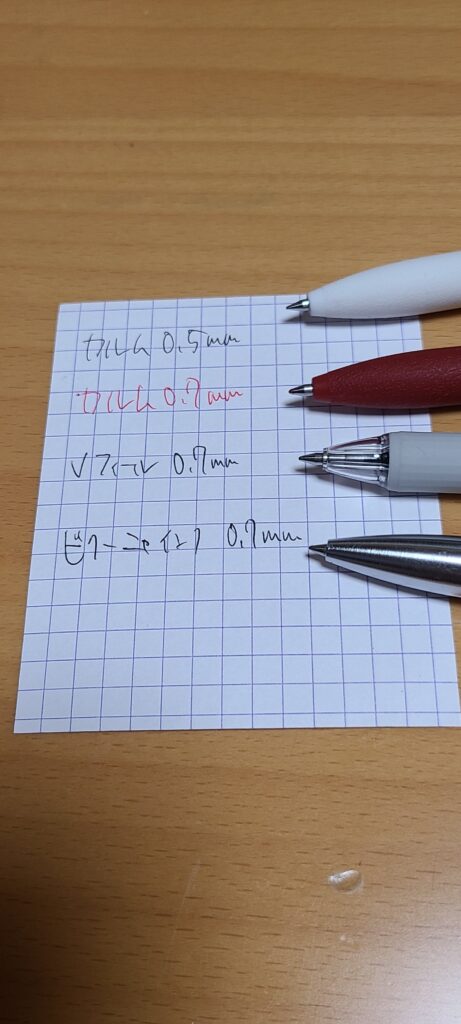 カルム 0.5mm
カルム 0.7mm
Vフィール 0.7mm
ビクーニャインク 0.7mm